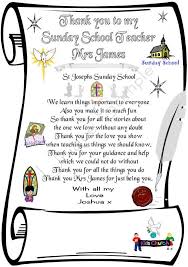 Thank you to my
Sunday School Teacher
Mrs James
Sunday School
St Josephs Sunday School
We learn things important to everyone
Also you make it so much fun
So thank you for all the stories about
the one we love without any doubt
Thank you for the love you show
when teaching us things we should know,
Thank you for your guidance and help
which we could not do without
Thank you for all the things you do
Thank you Mrs James for just being you.
With all my
Love
Joshua x
Kids Church